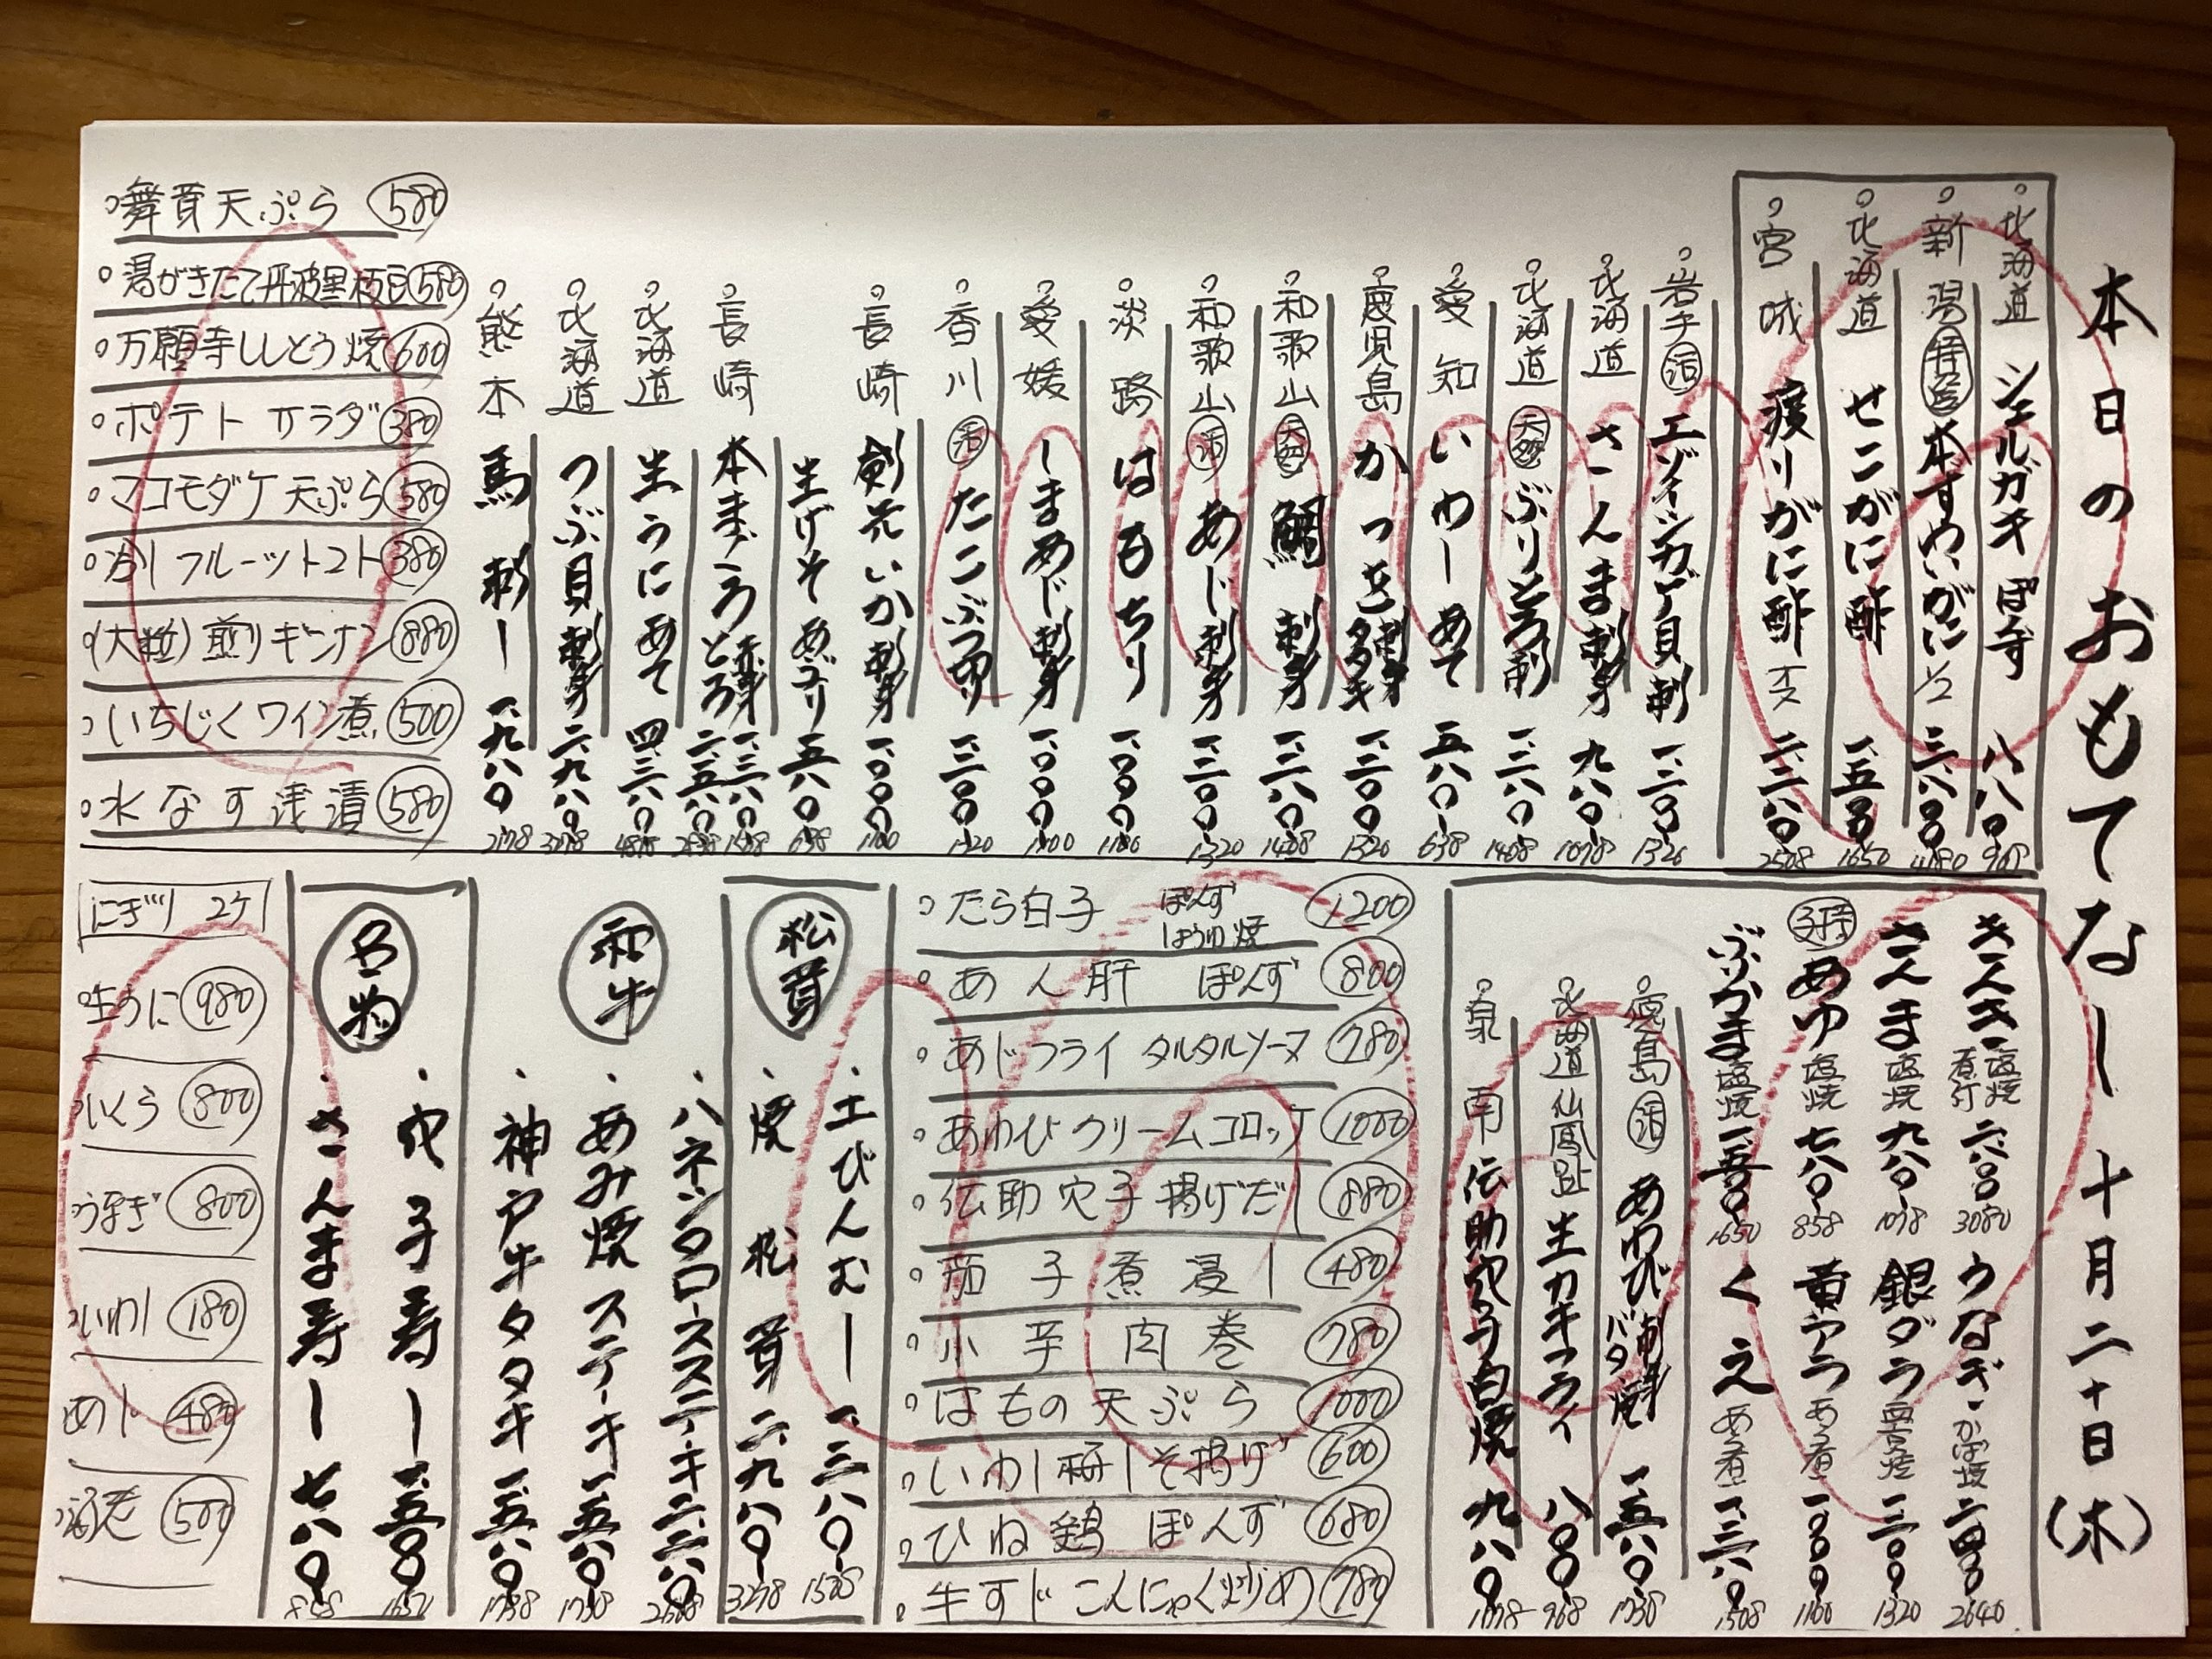 本日のおもてなし 十月二十日(木)
北海道 シェルガキ ぽん酢 八八〇 968
新潟 特選 本ずわいがに 1/2 三、八〇〇 4180
北海道 せこがに酢 一、五〇〇 1650
宮城 渡りがに酢 二、二八〇 2508
岩手 活 エゾイシカゲ貝刺 一、二〇〇 1320
北海道 さんま刺身 九八〇 1078
北海道 天然 ぶりとろ刺 一、二八〇 1408
愛知 いわし あて 五八〇 638
鹿児島 かつを 刺身 タタキ 一、二〇〇 1320
和歌山 天然 鯛 刺身 一、二八〇 1408
和歌山 活 あじ刺身 一、二〇〇 1320
淡路 はもちり 一、〇〇〇 1100
愛媛 しまあじ刺身 一、〇〇〇 1100
香川 活 たこぶつ切り 一、二〇〇 1320
長崎 剣先いか刺身 一、〇〇〇 1100
生げそあぶり 五八〇 638
長崎 本まぐろ 赤身 一、二八〇 1408
とろ 二、五八〇 2838
北海道 生うにあて 四、三八〇 4818
北海道 つぶ貝刺身 二、九八〇 3278
熊本 馬刺し 一、九八〇 2178
舞茸天ぷら 580
湯がきたて丹波黒枝豆 580
万願寺ししとう焼 600
ポテトサラダ 380
マコモダケ天ぷら 580
冷しフルーツトマト 380
(大粒)煎りギンナン 880
いちじくワイン煮 500
水なす浅漬 580
きんき 塩焼 煮付 二、八〇〇 3080
うなぎ かば焼 二、四〇〇 2640
さんま 塩焼 九八〇 1078
銀ダラ 西京焼 一、二〇〇 1320
子持 あゆ 塩焼 七八〇 858
黄アラ あら煮 一、〇〇〇 1100
ぶりかま 塩焼 一、五〇〇 1650
くえ あら煮 一、三八〇 1508
徳島 活 あわび 刺身 バタ焼 一、五八〇 1738
北海道 仙鳳趾 生カキフライ 八八〇 968
泉南 伝助穴子白焼 九八〇 1078
たら白子 ぽんず しょうゆ焼 1200
あん肝 ぽんず 800
あじフライ タルタルソース 780
あわびクリームコロッケ 1000
伝助穴子揚げだし 880
茄子煮浸し 480
小芋肉巻 780
はもの天ぷら 1000
いわし梅しそ揚げ 600
ひね鶏 ぽんず 680
牛すじこんにゃく炒め 780
松茸
・土びんむし 一、三八〇 1508
・焼松茸 二、九八〇 3278
和牛
・ハネシタロースステーキ 二、二八〇 2508
・あみ焼ステーキ 一、五八〇 1738
・神戸牛タタキ 一、五八〇 1738
名物
・穴子寿し 一、五〇〇 1650
・さんま寿し 七八〇 858
にぎり 2ケ
生うに 980
いくら 800
うなぎ 800
いわし 180
あじ 480
海老 500